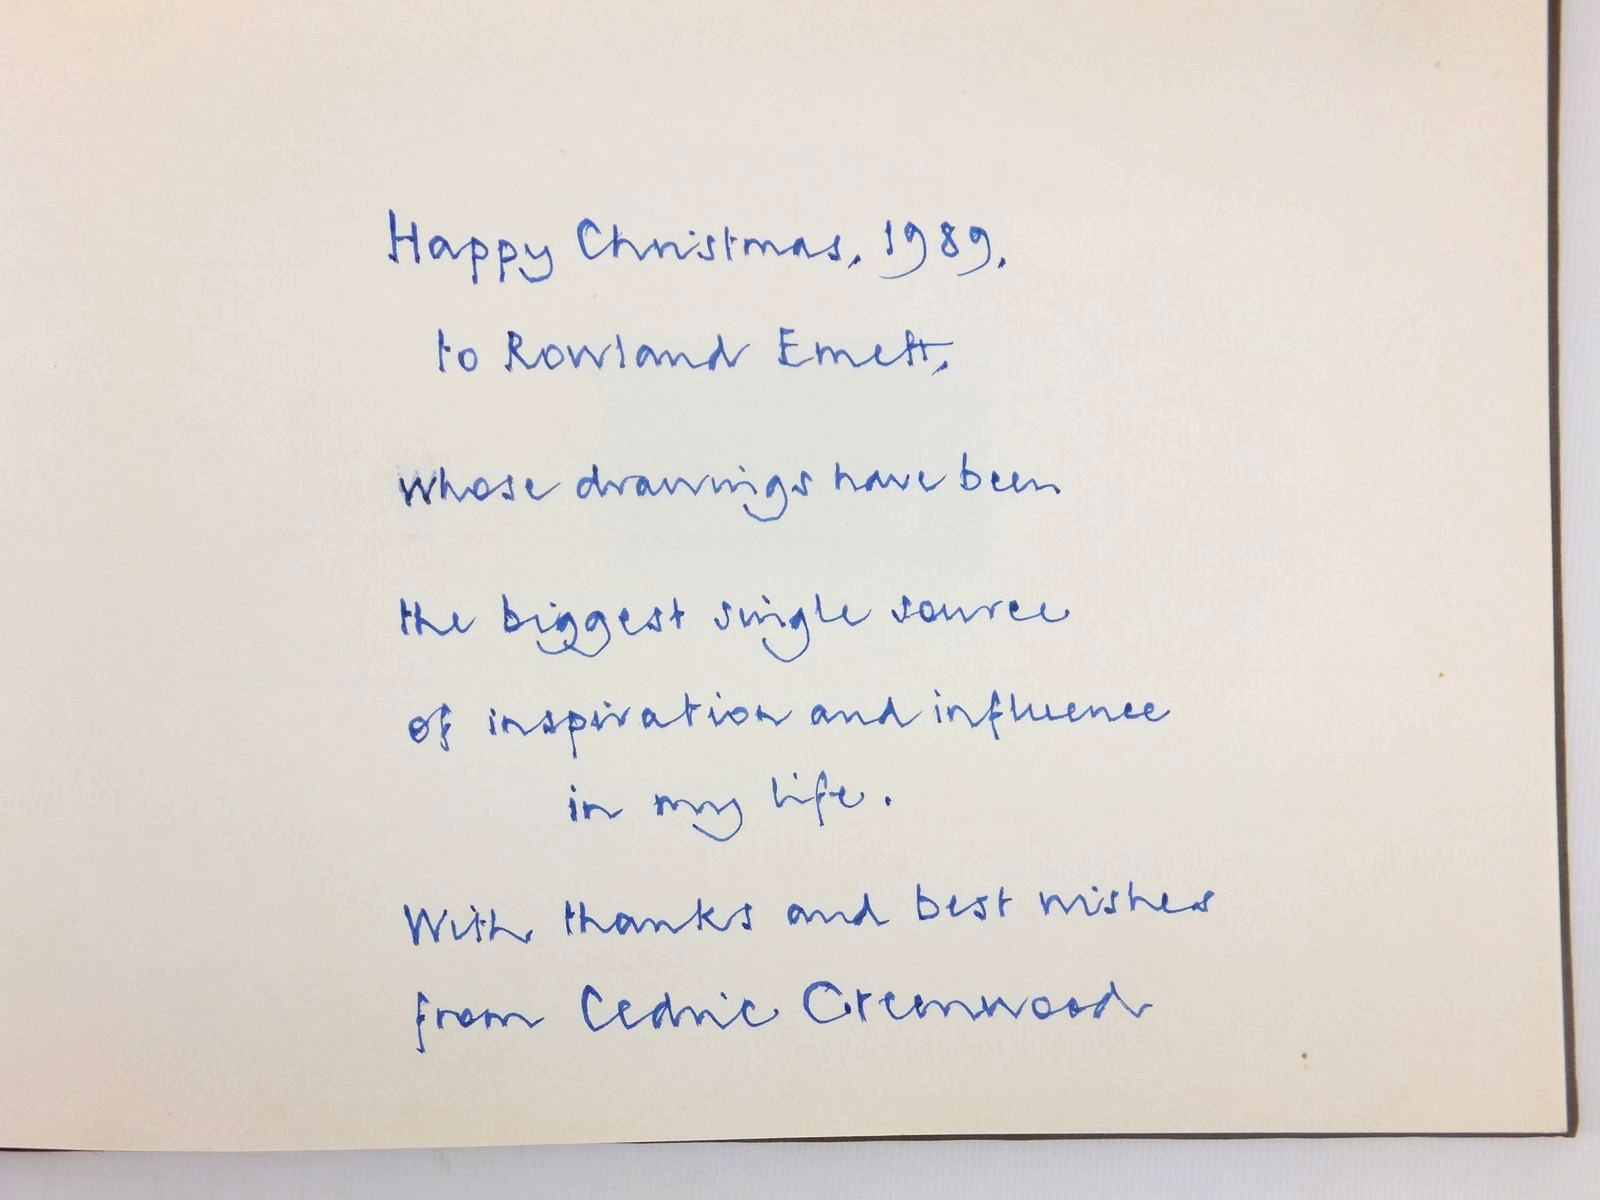 Happy Christmas, 1989,
to Rowland Emett,
whose drawings have been
the biggest single source
of inspiration and influence
in my life.
With thanks and best wishes
from Cedric Greenwood